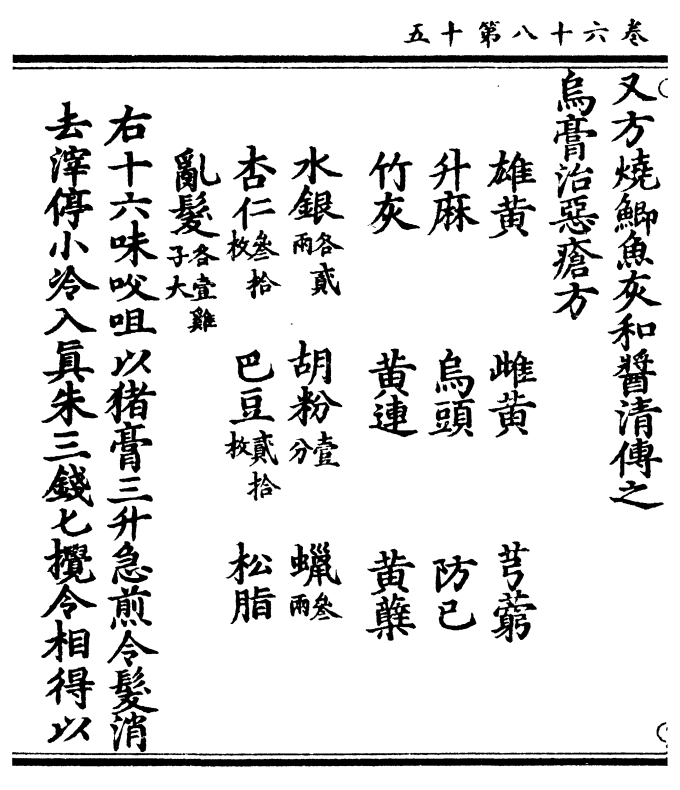 卷六十八第十五
又方燒鯽魚灰和醬清傅之
烏膏治惡瘡方
雄黄 雌黄 芎藭
升麻 烏頭 防已
竹灰 黄連 黄蘗
水銀各貳兩 胡粉壹分 蠟叄兩
杏仁叄拾枚 巴豆貳拾枚 松脂
亂髮各壹雞子大
右十六味㕮咀以猪膏三升急煎令髮消
去滓停小冷入眞朱三錢七攪令相得以